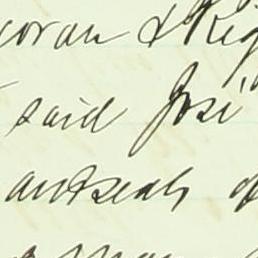 coran & Rig
said José
and seals of